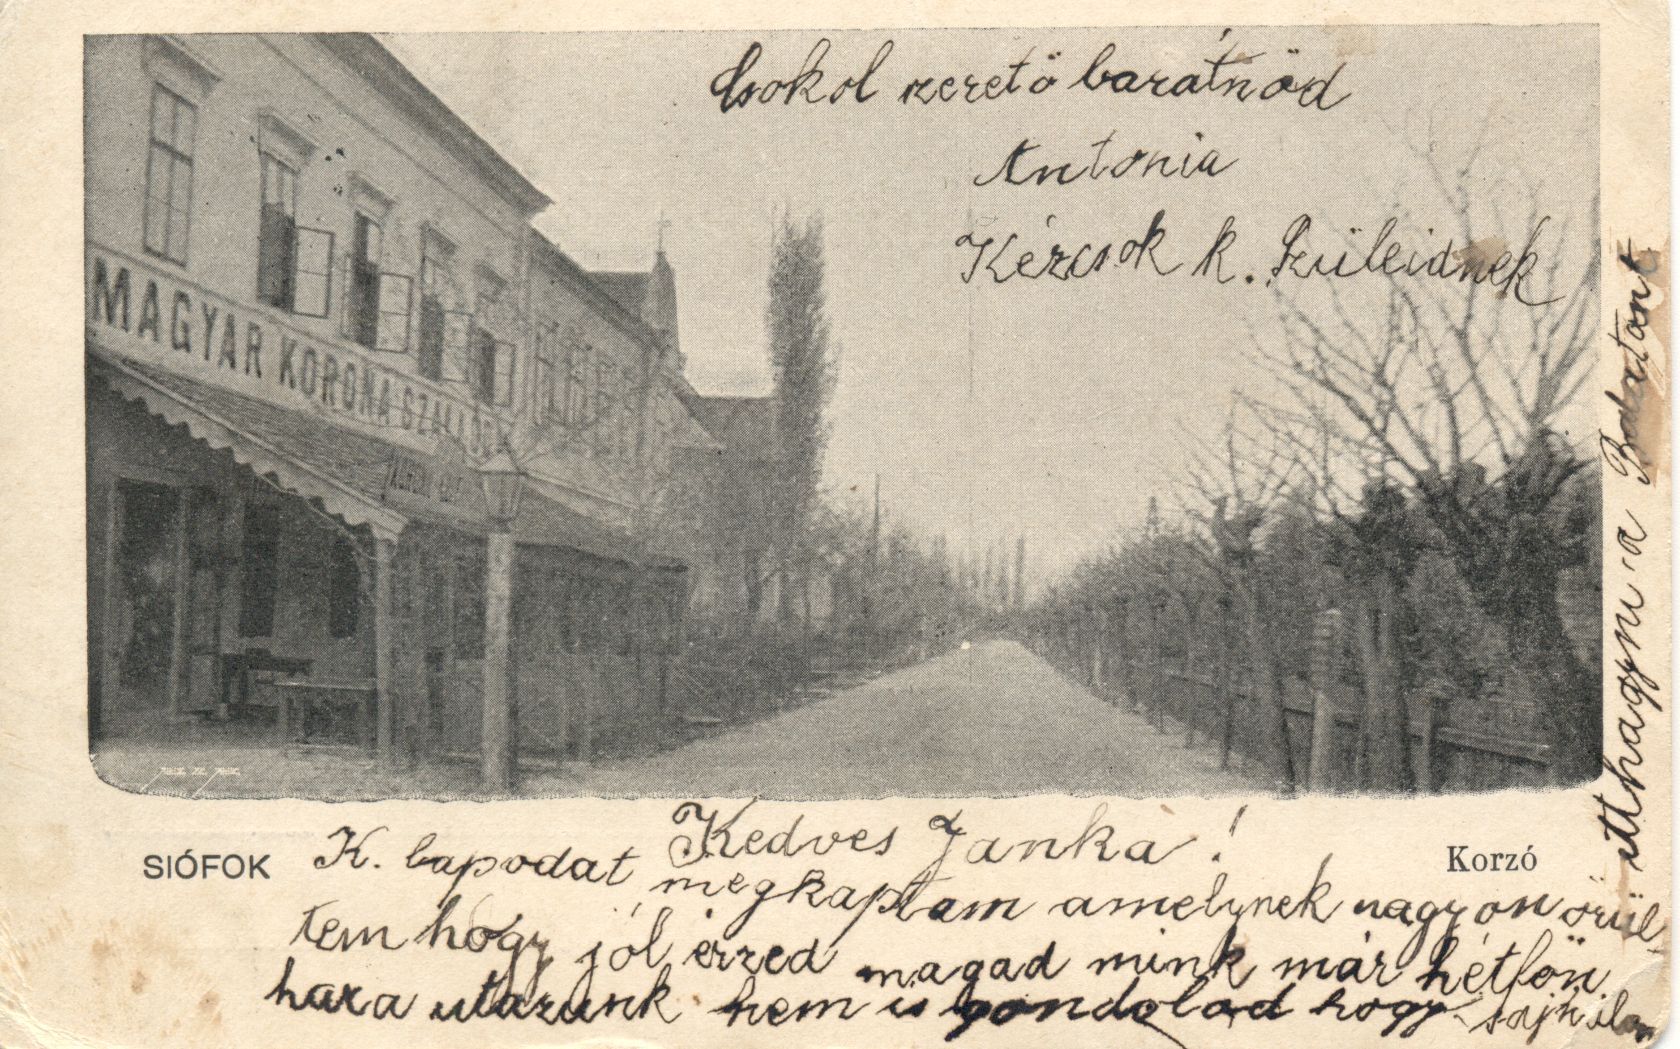 Csokol szerető barátnőd
Antonia
Kézcsok k. Szüleidnek
MAGYAR KORONA SZÁLLODA
SIÓFOK
Korzó
Kedves Janka!
K. lapodat megkaptam amelynek nagyon örül-
tem hogy jól érzed magad mink már hétfőn
haza utazunk nem is gondolod hogy
itthagyni a Balatont